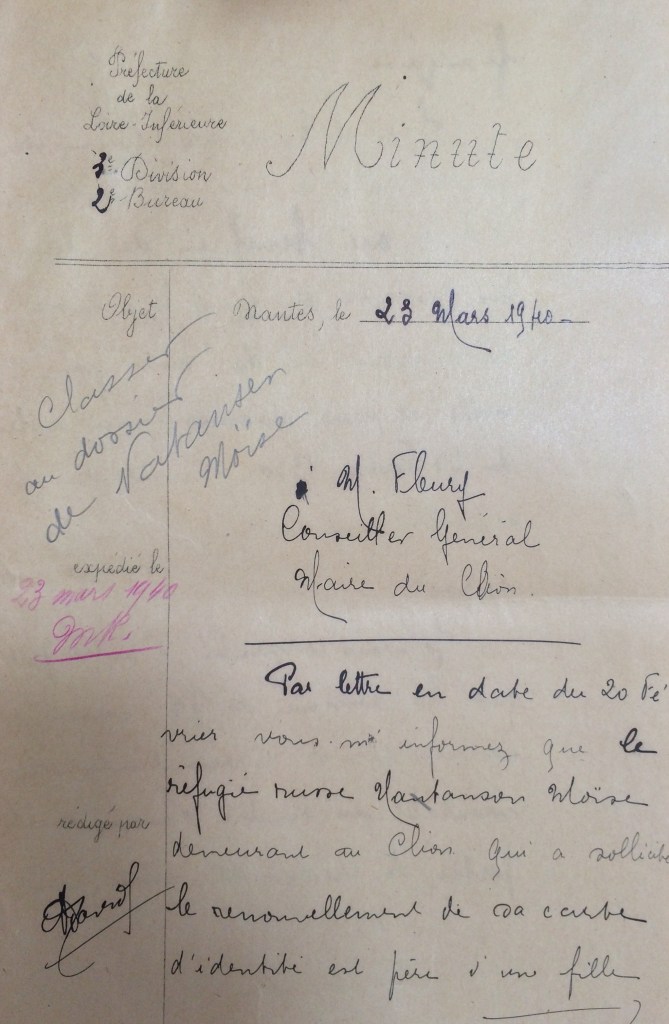 Préfecture
de la
Loire-Inférieure
3e Division
2e Bureau
Minute
Objet
Nantes, le 23 Mars 1940
Classer
au dossier
de Natansen
Moïse
à M. Fleury
Conseiller Général
Maire du Clion.
expédié le
23 mars 1940
Par lettre en date du 20 Fé
vrier vous m'informez que le
réfugié russe Nantanson Moïse
demeurant au Clion qui a sollicité
le renouvellement de sa carte
d'identité est père d'une fille
rédigé par